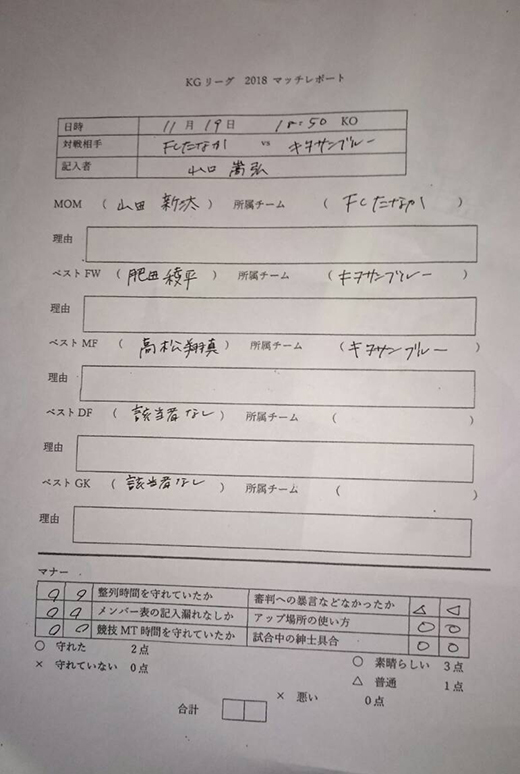 KGリーグ 2018 マッチレポート
日時 11月19日 18:50 KO
対戦相手 FCたなか vs キタサンブルー
記入者 山口 嵩弘
MOM ( 山田 新汰 ) 所属チーム ( FCたなか )
理由
ベストFW ( 肥田稜平 ) 所属チーム ( キタサンブルー )
理由
ベストMF ( 高松翔真 ) 所属チーム ( キタサンブルー )
理由
ベストDF ( 該当者なし ) 所属チーム ( )
理由
ベストGK ( 該当者なし ) 所属チーム ( )
理由
マナー
○ ○ 整列時間を守れていたか 審判への暴言などなかったか △ △
○ ○ メンバー表の記入漏れなしか アップ場所の使い方 ○ ○
○ ○ 競技MT時間を守れていたか 試合中の紳士具合 ○ ○
○ 守れた 2点 ○ 素晴らしい 3点
× 守れていない 0点 △ 普通 1点
× 悪い 0点
合計